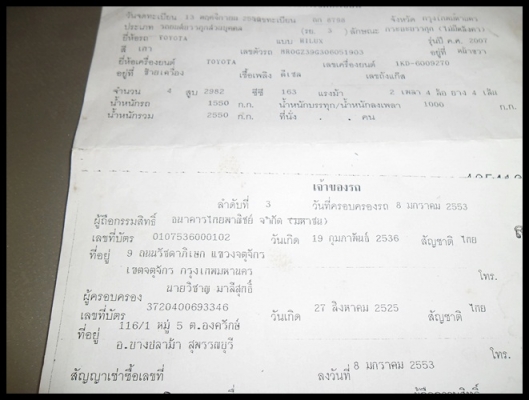 วันจดทะเบียน 13 พฤศจิกายน ทะเบียน 6798 จังหวัด กรุงเทพมหานคร
ประเภท รถยนต์ (รย. 3 ) ลักษณะ กระบะบรรทุก
ยี่ห้อรถ TOYOTA แบบ HILUX รุ่นปี ค.ศ. 2007
สี เทา เลขตัวรถ อยู่ที่
ยี่ห้อเครื่องยนต์ TOYOTA เลขเครื่องยนต์ 1KD-6009270
อยู่ที่ ข้างเครื่อง เชื้อเพลิง ดีเซล เลขถังแก๊ส
จำนวน 4 สูบ 2982 ซีซี 163 แรงม้า 2 เพลา 4 ล้อ ยาง 4 เส้น
น้ำหนักรถ 1550 ก.ก. น้ำหนักบรรทุก/น้ำหนักลงเพลา 1000 ก.ก.
น้ำหนักรวม 2550 ก.ก. ที่นั่ง คน
เจ้าของรถ
ลำดับที่ 3 วันที่ครอบครองรถ 8 มกราคม 2553
ผู้ถือกรรมสิทธิ์ ธนาคารไทยพาณิชย์ จำกัด (มหาชน)
เลขที่บัตร 0107536000102 วันเกิด 19 กุมภาพันธ์ 2536 สัญชาติ ไทย
ที่อยู่ 9 ถนนรัชดาภิเษก แขวงจตุจักร
เขตจตุจักร กรุงเทพมหานคร โทร.
ผู้ครอบครอง นายวิชาญ มาลีสุทธิ์
เลขที่บัตร 3720400693346 วันเกิด 27 สิงหาคม 2525 สัญชาติ ไทย
ที่อยู่ 116/1 หมู่ 5 ต.องครักษ์
อ.บางปลาม้า สุพรรณบุรี โทร.
สัญญาเช่าซื้อเลขที่ ลงวันที่ 8 มกราคม 2553